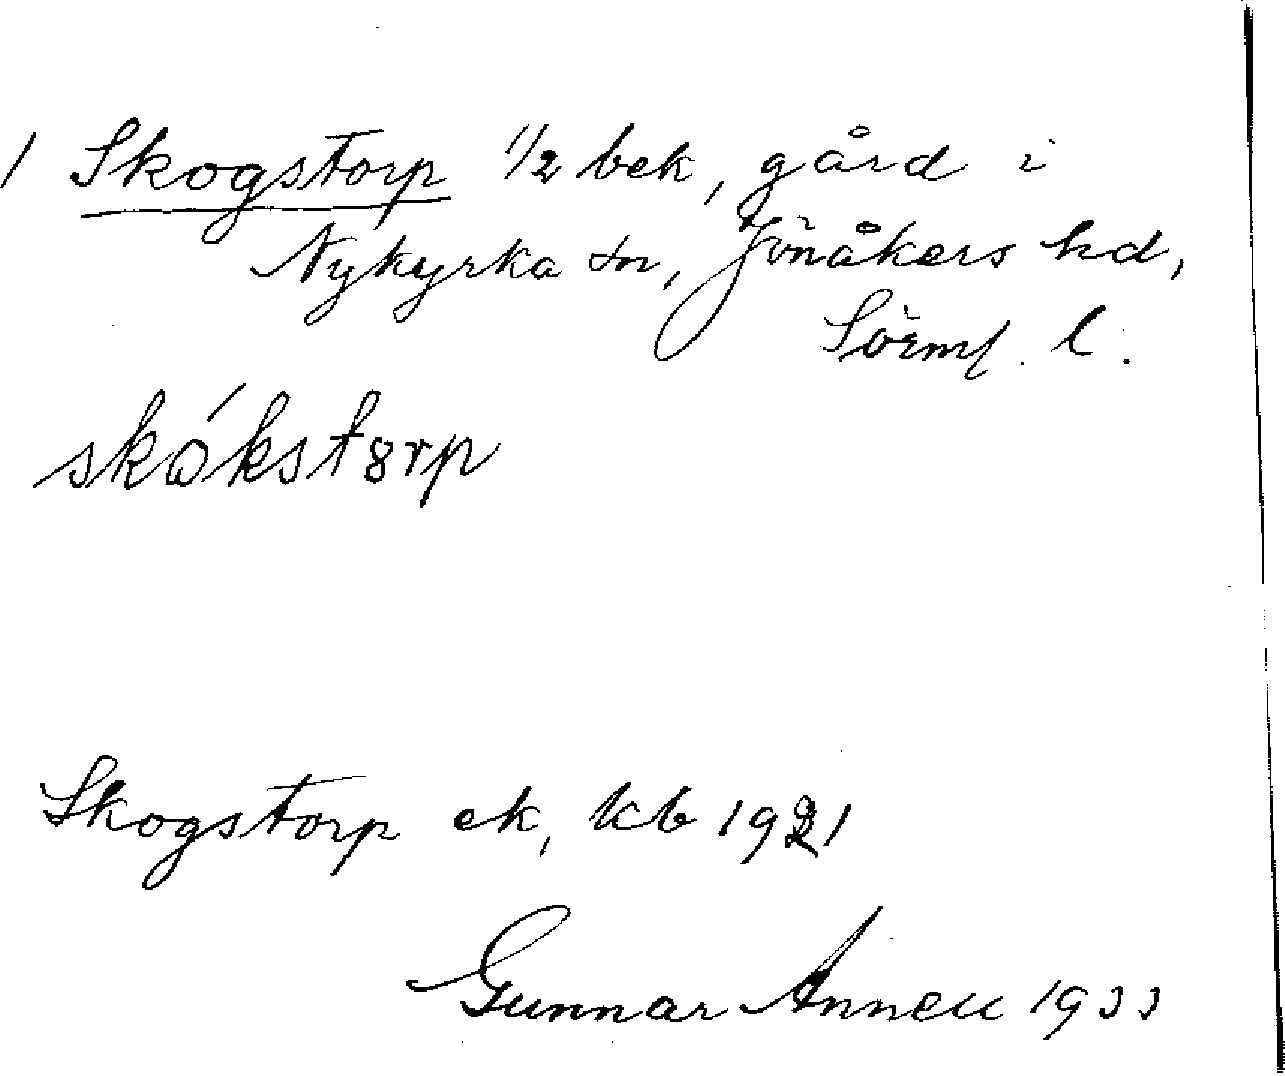 / Skogstorp 1/2 bek, gård i
Nykyrka sn, Jönåkers hd,
Sörml. l.
skókstorp
Skogstorp ek, kb 1921
Gunnar Annell 1933